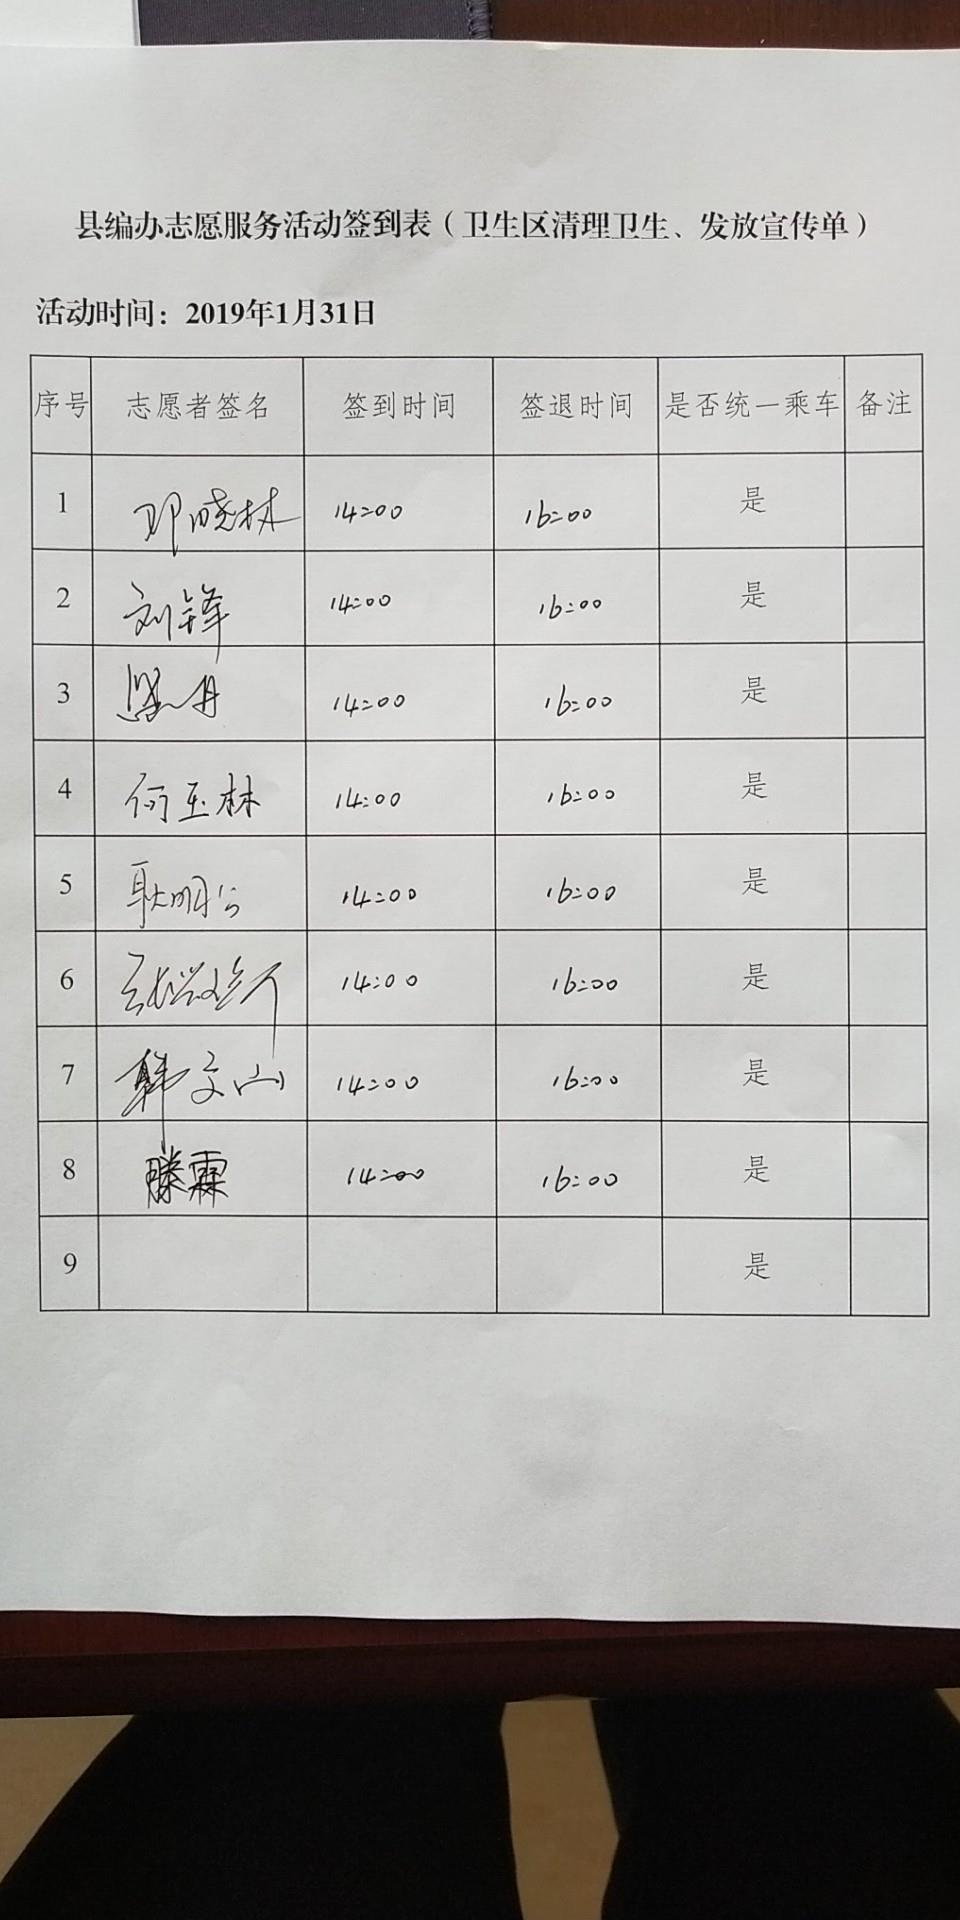 县编办志愿服务活动签到表（卫生区清理卫生、发放宣传单）
活动时间：2019年1月31日
序号 志愿者签名 签到时间 签退时间 是否统一乘车 备注
1 邓晓林 14:00 16:00 是
2 刘锋 14:00 16:00 是
3 14:00 16:00 是
4 何玉林 14:00 16:00 是
5 耿明 14:00 16:00 是
6 14:00 16:00 是
7 韩文山 14:00 16:00 是
8 滕霖 14:00 16:00 是
9 是